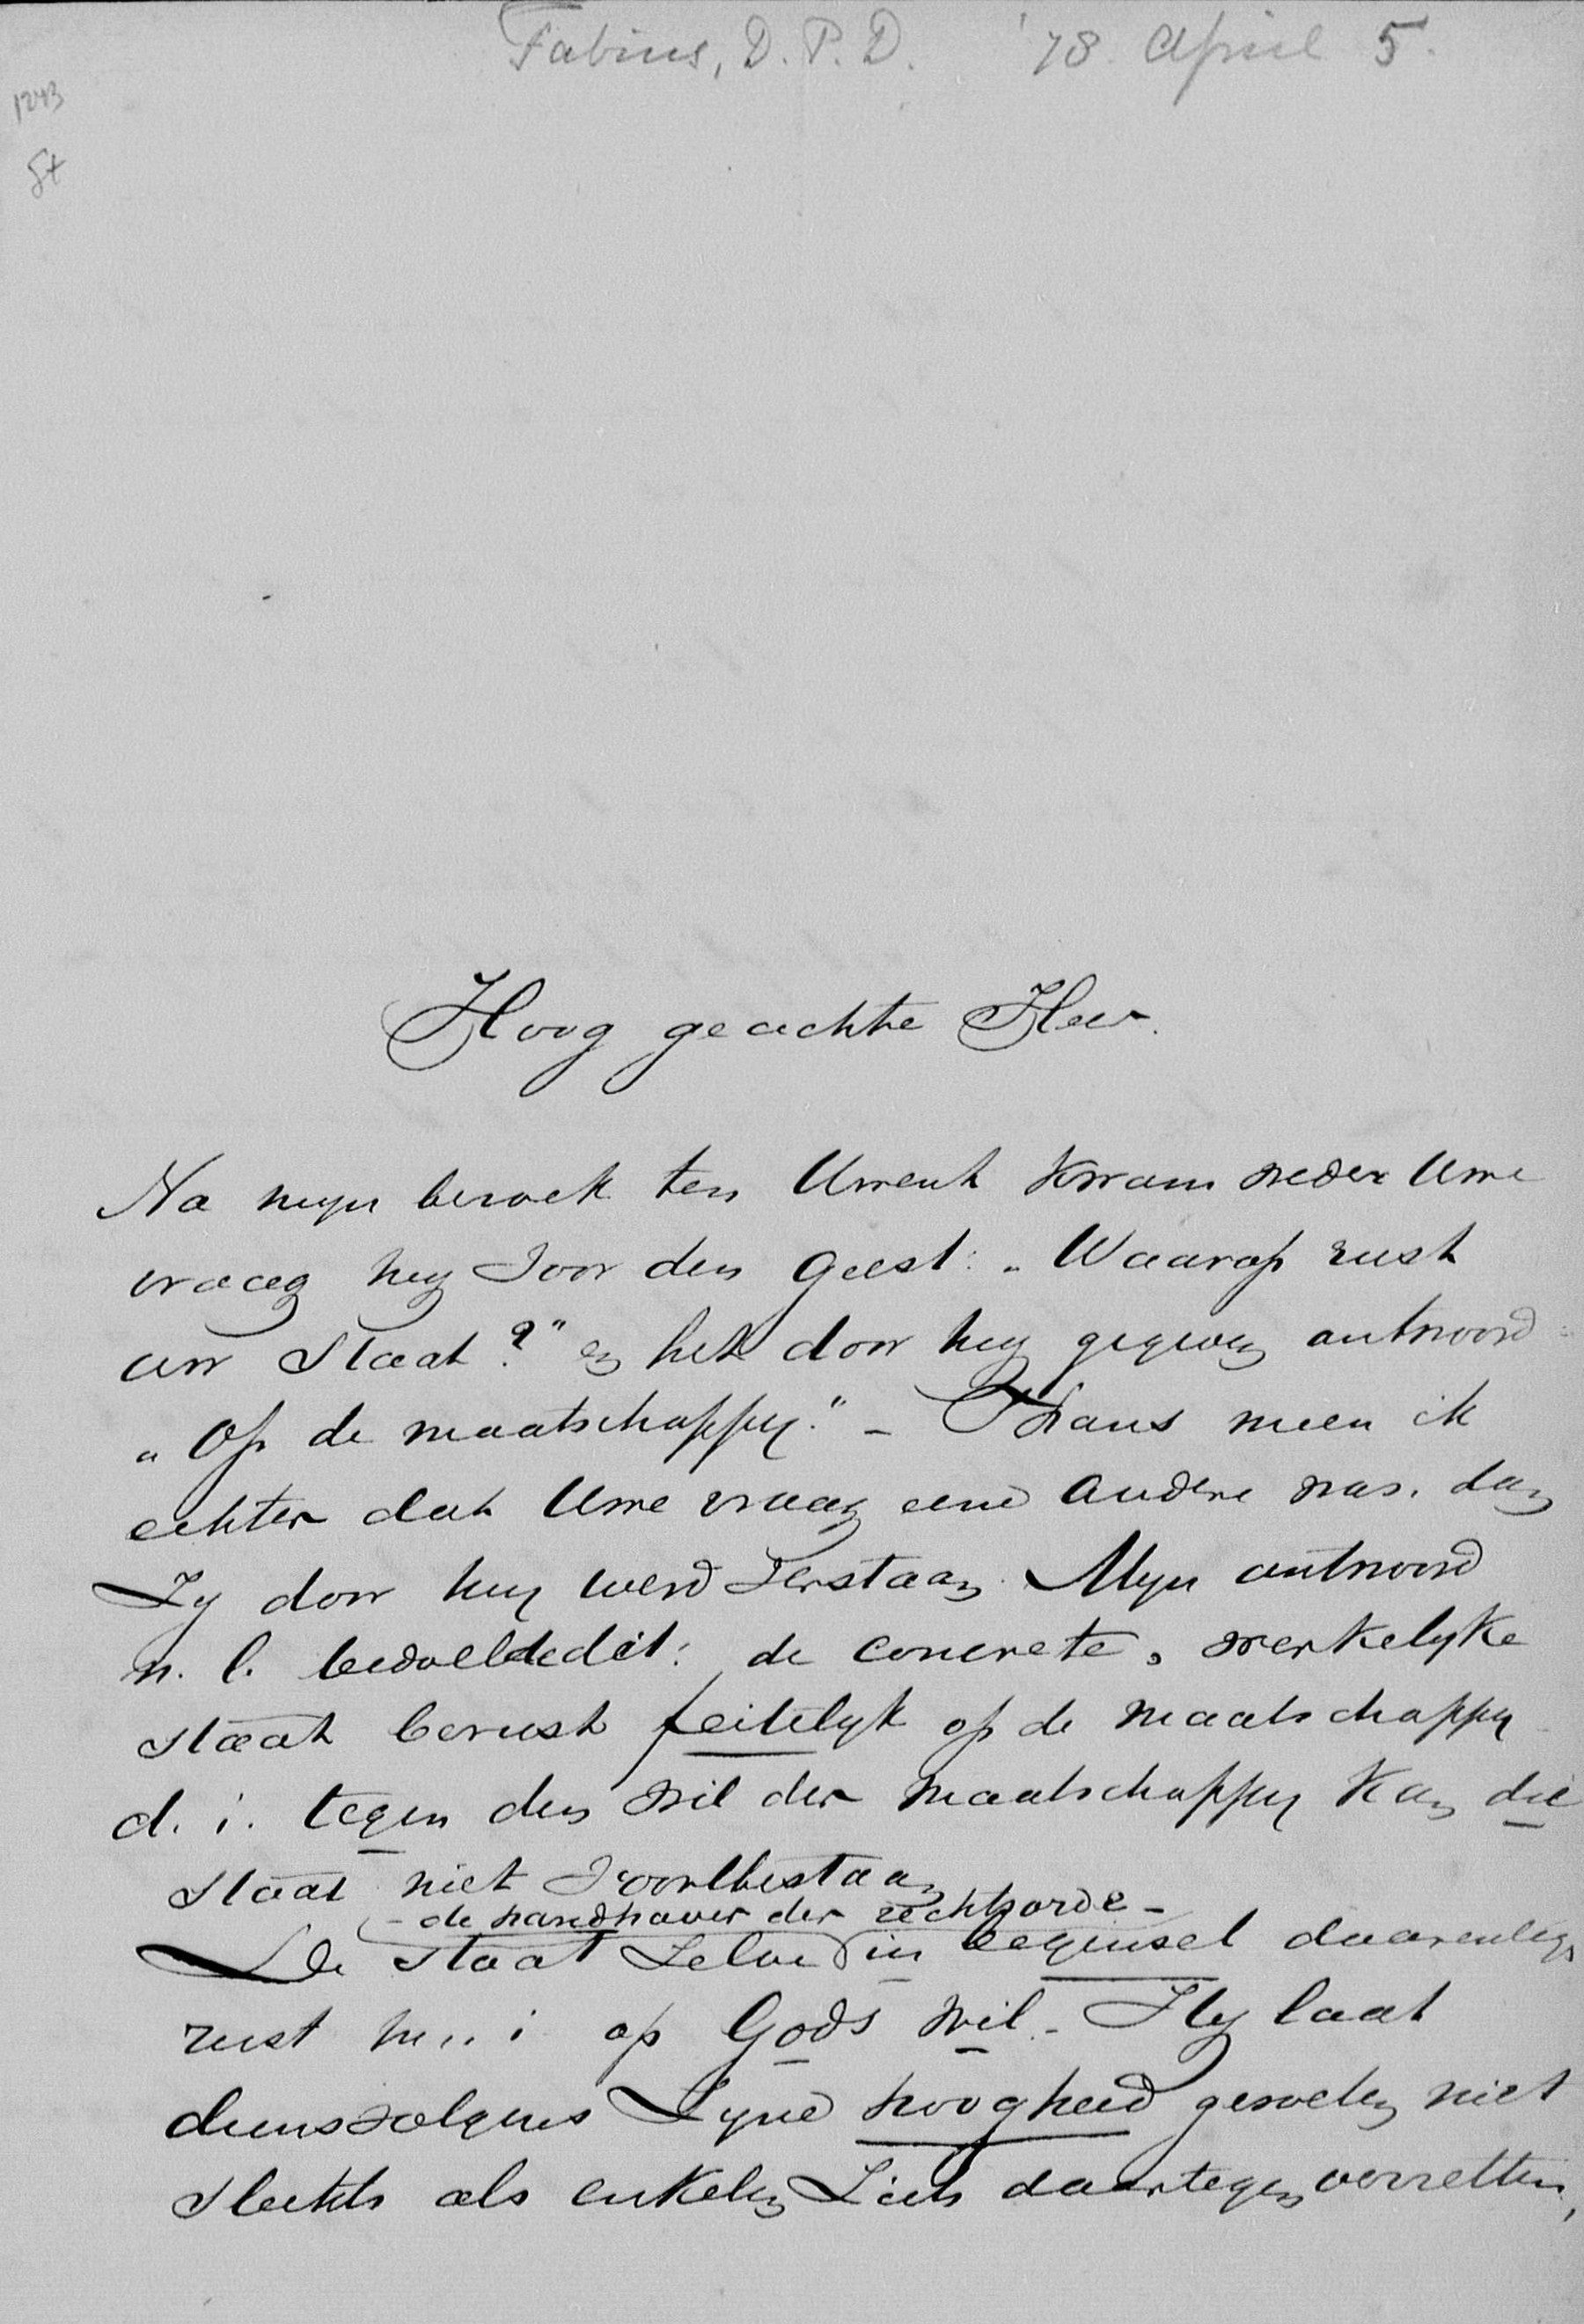 Fabius, D. P. D. '78. April 5.
1243
Hoog geachte Heer.
Na mijn bezoek ten Uwent kwam weder Uwe
vraag mij voor den geest: „Waarop rust
uw Staat?" en het door mij gegeven antwoord:
„Op de maatschappij." – Thans meen ik
echter dat Uwe vraag eene andere was, dan
zij door mij werd verstaan. Mijn antwoord
n. l. bedoelde dit: de concrete, werkelijke
staat berust feitelijk op de maatschappij
d. i. tegen den wil der maatschappij kan die
staat niet voortbestaan
– de handhaver der rechtsorde –
De staat zelve in beginsel daarentegen
rust m. i. op Gods wil. – Hij laat
diensvolgens Zijne hoogheid gevoelen niet
slechts als enkelen zich daartegen verzetten,